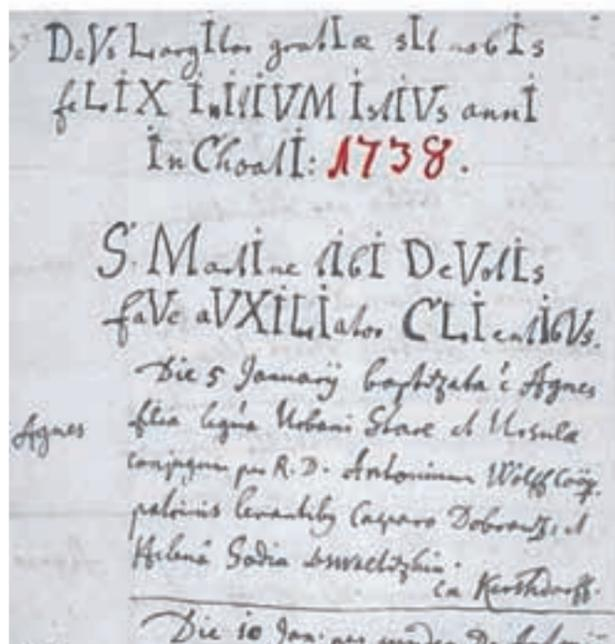 DeVs LargItor gratIæ sIt nobIs
feLIX InItIVM IstIVs annI
InChoatI: 1738.
S. MartIne tIbI DeVotIs
faVe aVXILIator CLIentIbVs.
Die 5 Januarij baptizata ẽ Agnes
Agnes
filia Urbani et Ursulæ
conjugum per R. D. Antonium Wolff Coõp.
patrinis levantibq Casparo et
Helena
ex Kershdorff.
Die 10 Jan: